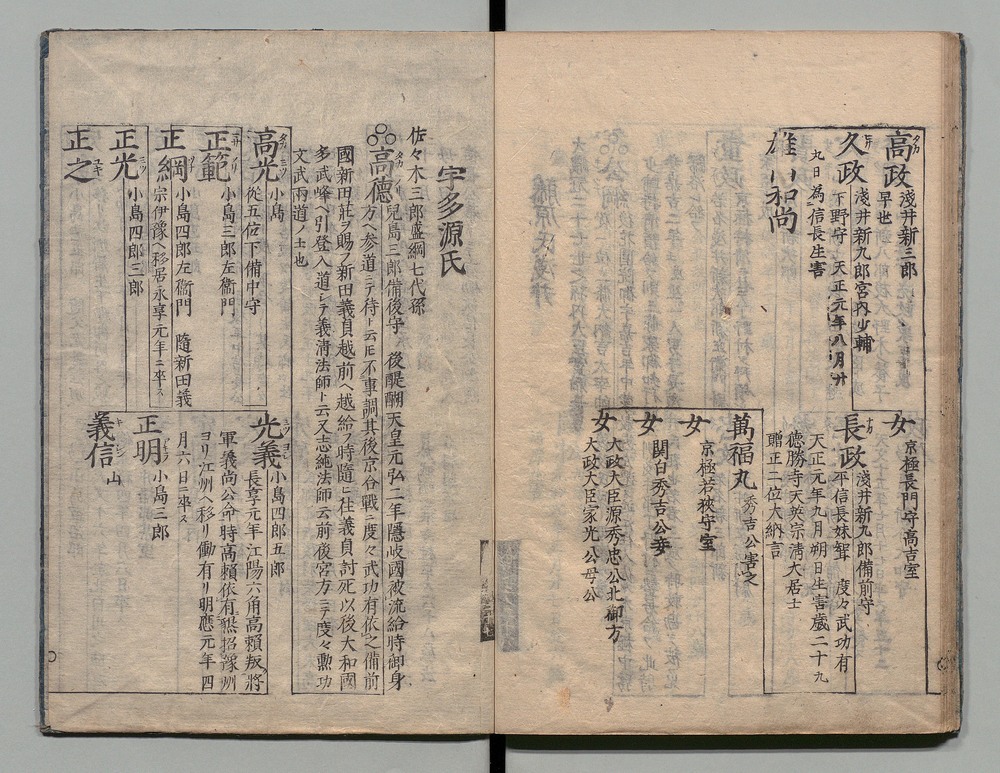 高政 淺井新三郎
早世
久政 淺井新九郎宮内少輔
下野守 天正元年八月廿
九日為信長生害
雄山和尚
女 京極長門守高吉室
長政 淺井新九郎備前守
平信長妹聟 度々武功有
天正元年九月朔日生害歳二十九
徳勝寺天英宗清大居士
贈正二位大納言
萬福丸 秀吉公害之
女 京極若狭守室
女 関白秀吉公妾
女 大政大臣源秀忠公北御方
大政大臣家光公母公
宇多源氏
佐々木三郎盛綱七代孫
高德 兒島三郎備後守 後醍醐天皇元弘二年隱岐國被流給時御身
方ヘ参道ニテ待ト云𪜈不事調其後京合戰ニ度々武功有依之備前
國新田莊ヲ賜フ新田義貞越前ヘ越給フ時隨ヒ住義貞討死以後大和國
多武峰ヘ引登入道シテ義清法師ト云又志純法師云前後宮方ニテ度々勲功
文武兩道ノ士也
高光 小島
從五位下備中守
正範 小島三郎左衞門
正綱 小島四郎左衞門 隨新田義
宗伊豫ヘ移居永享元年ニ卒ス
正光 小島四郎三郎
正之
光義 小島四郎五郎
長享元年江陽六角高賴叛將
軍義尚公命時高賴依有懇招豫州
ヨリ江州ヘ移リ働有リ明應元年四
月六日ニ卒ス
正明 小島三郎
義信 山